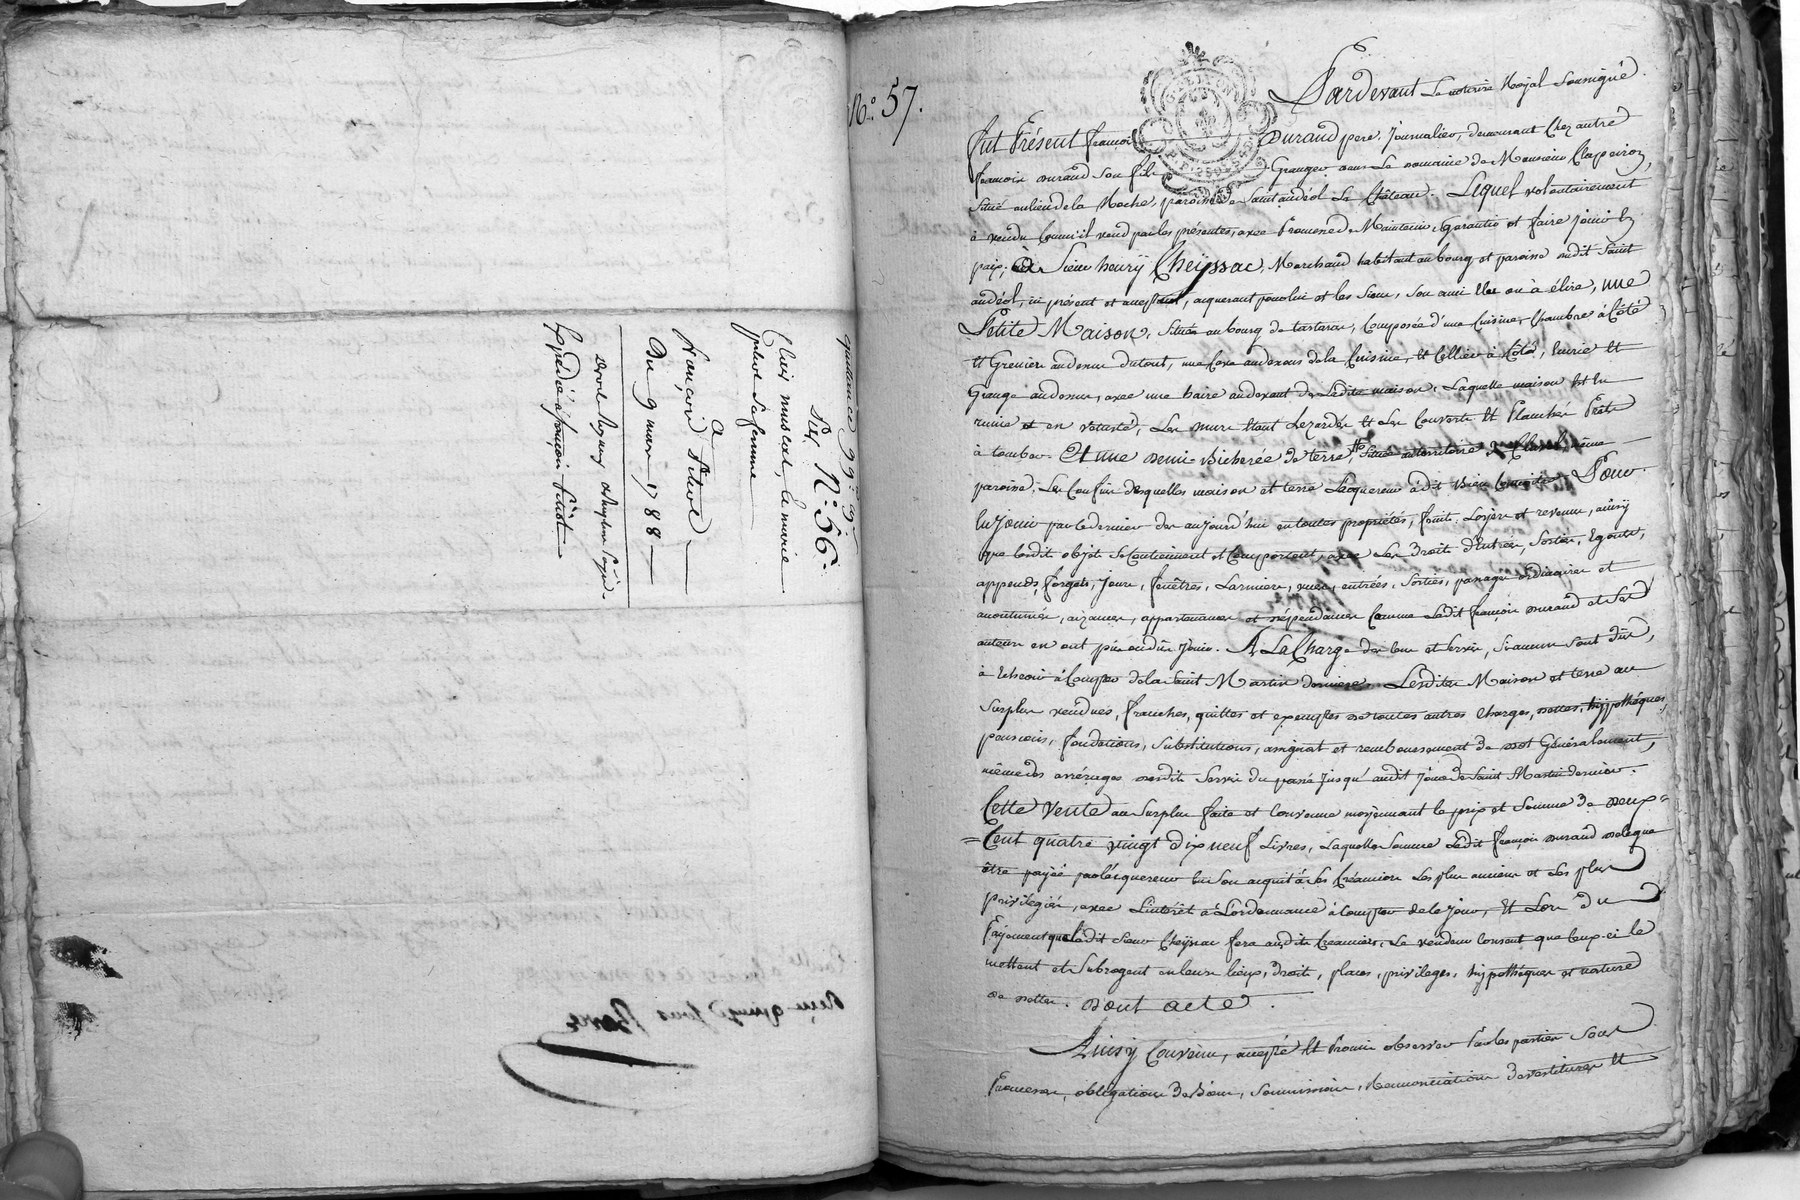 quittance 99# 9s
Pter N.° 56.
Clair muscat, le mari
de sa femme
a
François Pitiot
Du 9 mars 1788
Expédié à françois Pitiot
Reçu quinze sous
N.° 57.
GENER LYON
Pardevant Le notaire Royal soussigné.
fut Présent françois Durand pere, Journalier, demeurant chez autre
françois Durand son fils Granger dans Le domaine de Monsieur Clapeiron,
situé au lieu de la Roche, paroisse de Saint andéol Le Château. Lequel volontairement
à vendu comm'il vend par les présentes, avec Promesse de Maintenir, Garantir et faire jouir En
paix, à Sieur henry Cheyssac, Marchand habitant au bourg et paroisse dudit Saint
andéol, ici présent et acceptant, acquereur pour lui et les siens, son ami élu ou à élire, une
Petite Maison, située au bourg de tartaras, Composée d'une Cuisine, Chambre à Côté
Et Grenier au dessus du tout, une Cave au dessous de la Cuisine, Et Cellier à Côté, Ecurie Et
Grange au dessus, avec une haire au devant de Ladite maison, Laquelle maison Est En
ruine et en vetusté, Les murs Etant Lezardés Et Les Couverts Et Planchers Prêts
à tomber. Et une demi Bicherée de terre, située au territoire de même
paroisse; Les Confins desquelles maison et terre L'acquereur à dit Bien Connoitre. Pour
En Jouir par ce dernier dès aujourd'hui en toutes propriétés, fruits, Loyers et revenus, ainsy
que lesdits objets se Contiennent et Comportent, avec Les Droits d'Entrées, Sorties, Egouts,
appends, forgets, Jours, fenêtres, Larmiers, vues, entrées, Sorties, passages ordinaires et
accoutumés, aizances, appartenances et dépendances Comme Ledit françois Durand et Ses
auteurs en ont pû ou dû Jouir. A La Charge des Cens et Servis, Si aucuns Sont dûs,
à Echeoir à Compter de la Saint Martin derniere. Lesdites Maison et terre au
Surplus vendues, franches, quittes et exemptes de toutes autres Charges, dettes, hyppothéques,
pensions, fondations, Substitutions, assignat et remboursement de dot Généralement,
même des arrérages desdits Servis du passé Jusqu'audit Jour de Saint Martin dernier.
Cette vente au Surplus faite et Convenue moyennant le prix et Somme de deux=
=Cent quatre vingt dix neuf Livres, Laquelle Somme Ledit françois Durand delegue
être payée par l'acquereur En Son acquit à Ses Créanciers Les plus anciens et Les plus
privilegiés, avec L'interêt à L'ordonnance à Compter de Ce Jour, Et Lors du
Payement que Ledit Sieur Cheyssac fera auxdits Creanciers, Le vendeur Consent que Ceux-ci le
mettent et Subrogent en leurs lieux, droits, places, privileges, hyppothéques et nature
de dettes. Dont acte.
Ainsy Convenu, accepté Et Promis observer Par les parties Sous
Promesses, obligations de Biens, Soumissions, Renonciations de restituer Et